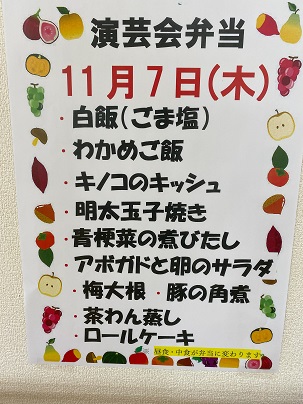 演芸会弁当
11月7日(木)
・白飯(ごま塩)
・わかめご飯
・キノコのキッシュ
・明太玉子焼き
・青梗菜の煮びたし
・アボガドと卵のサラダ
・梅大根 ・豚の角煮
・茶わん蒸し
・ロールケーキ
※ 昼食・中食が弁当に変わります。